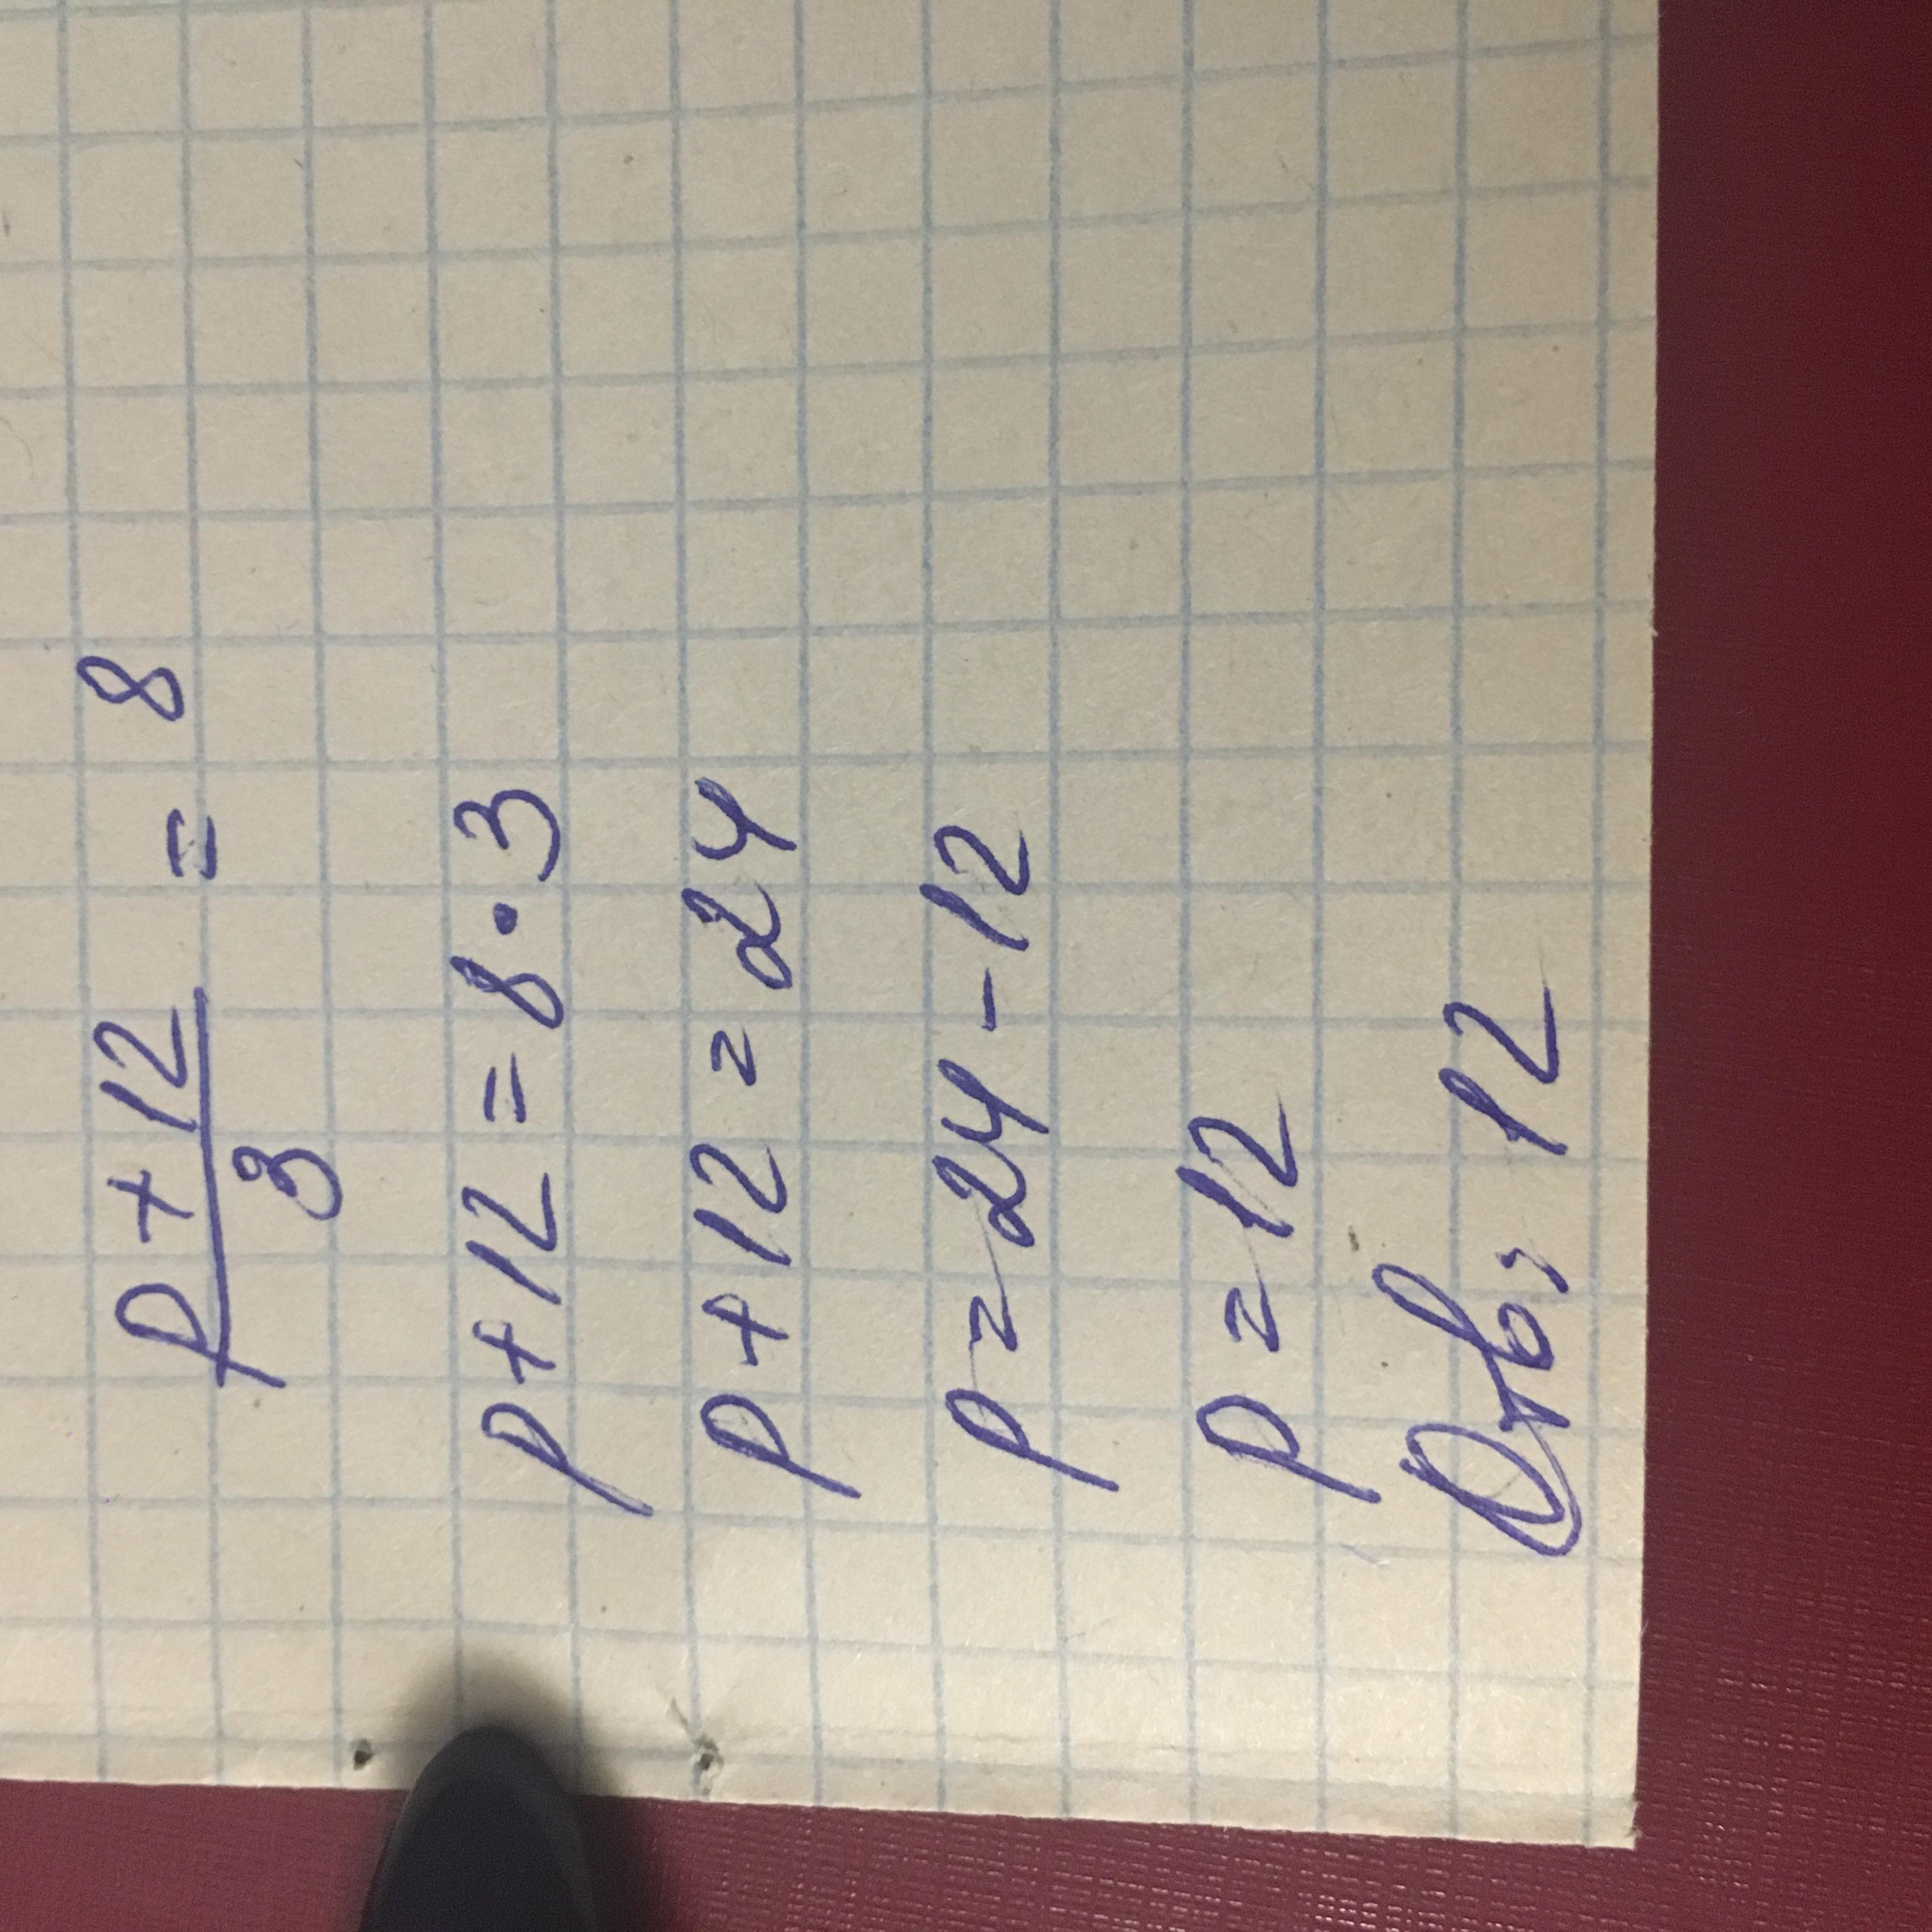 p + 12 / 3 = 8
p + 12 = 8 · 3
p + 12 = 24
p = 24 - 12
p = 12
Отв, 12